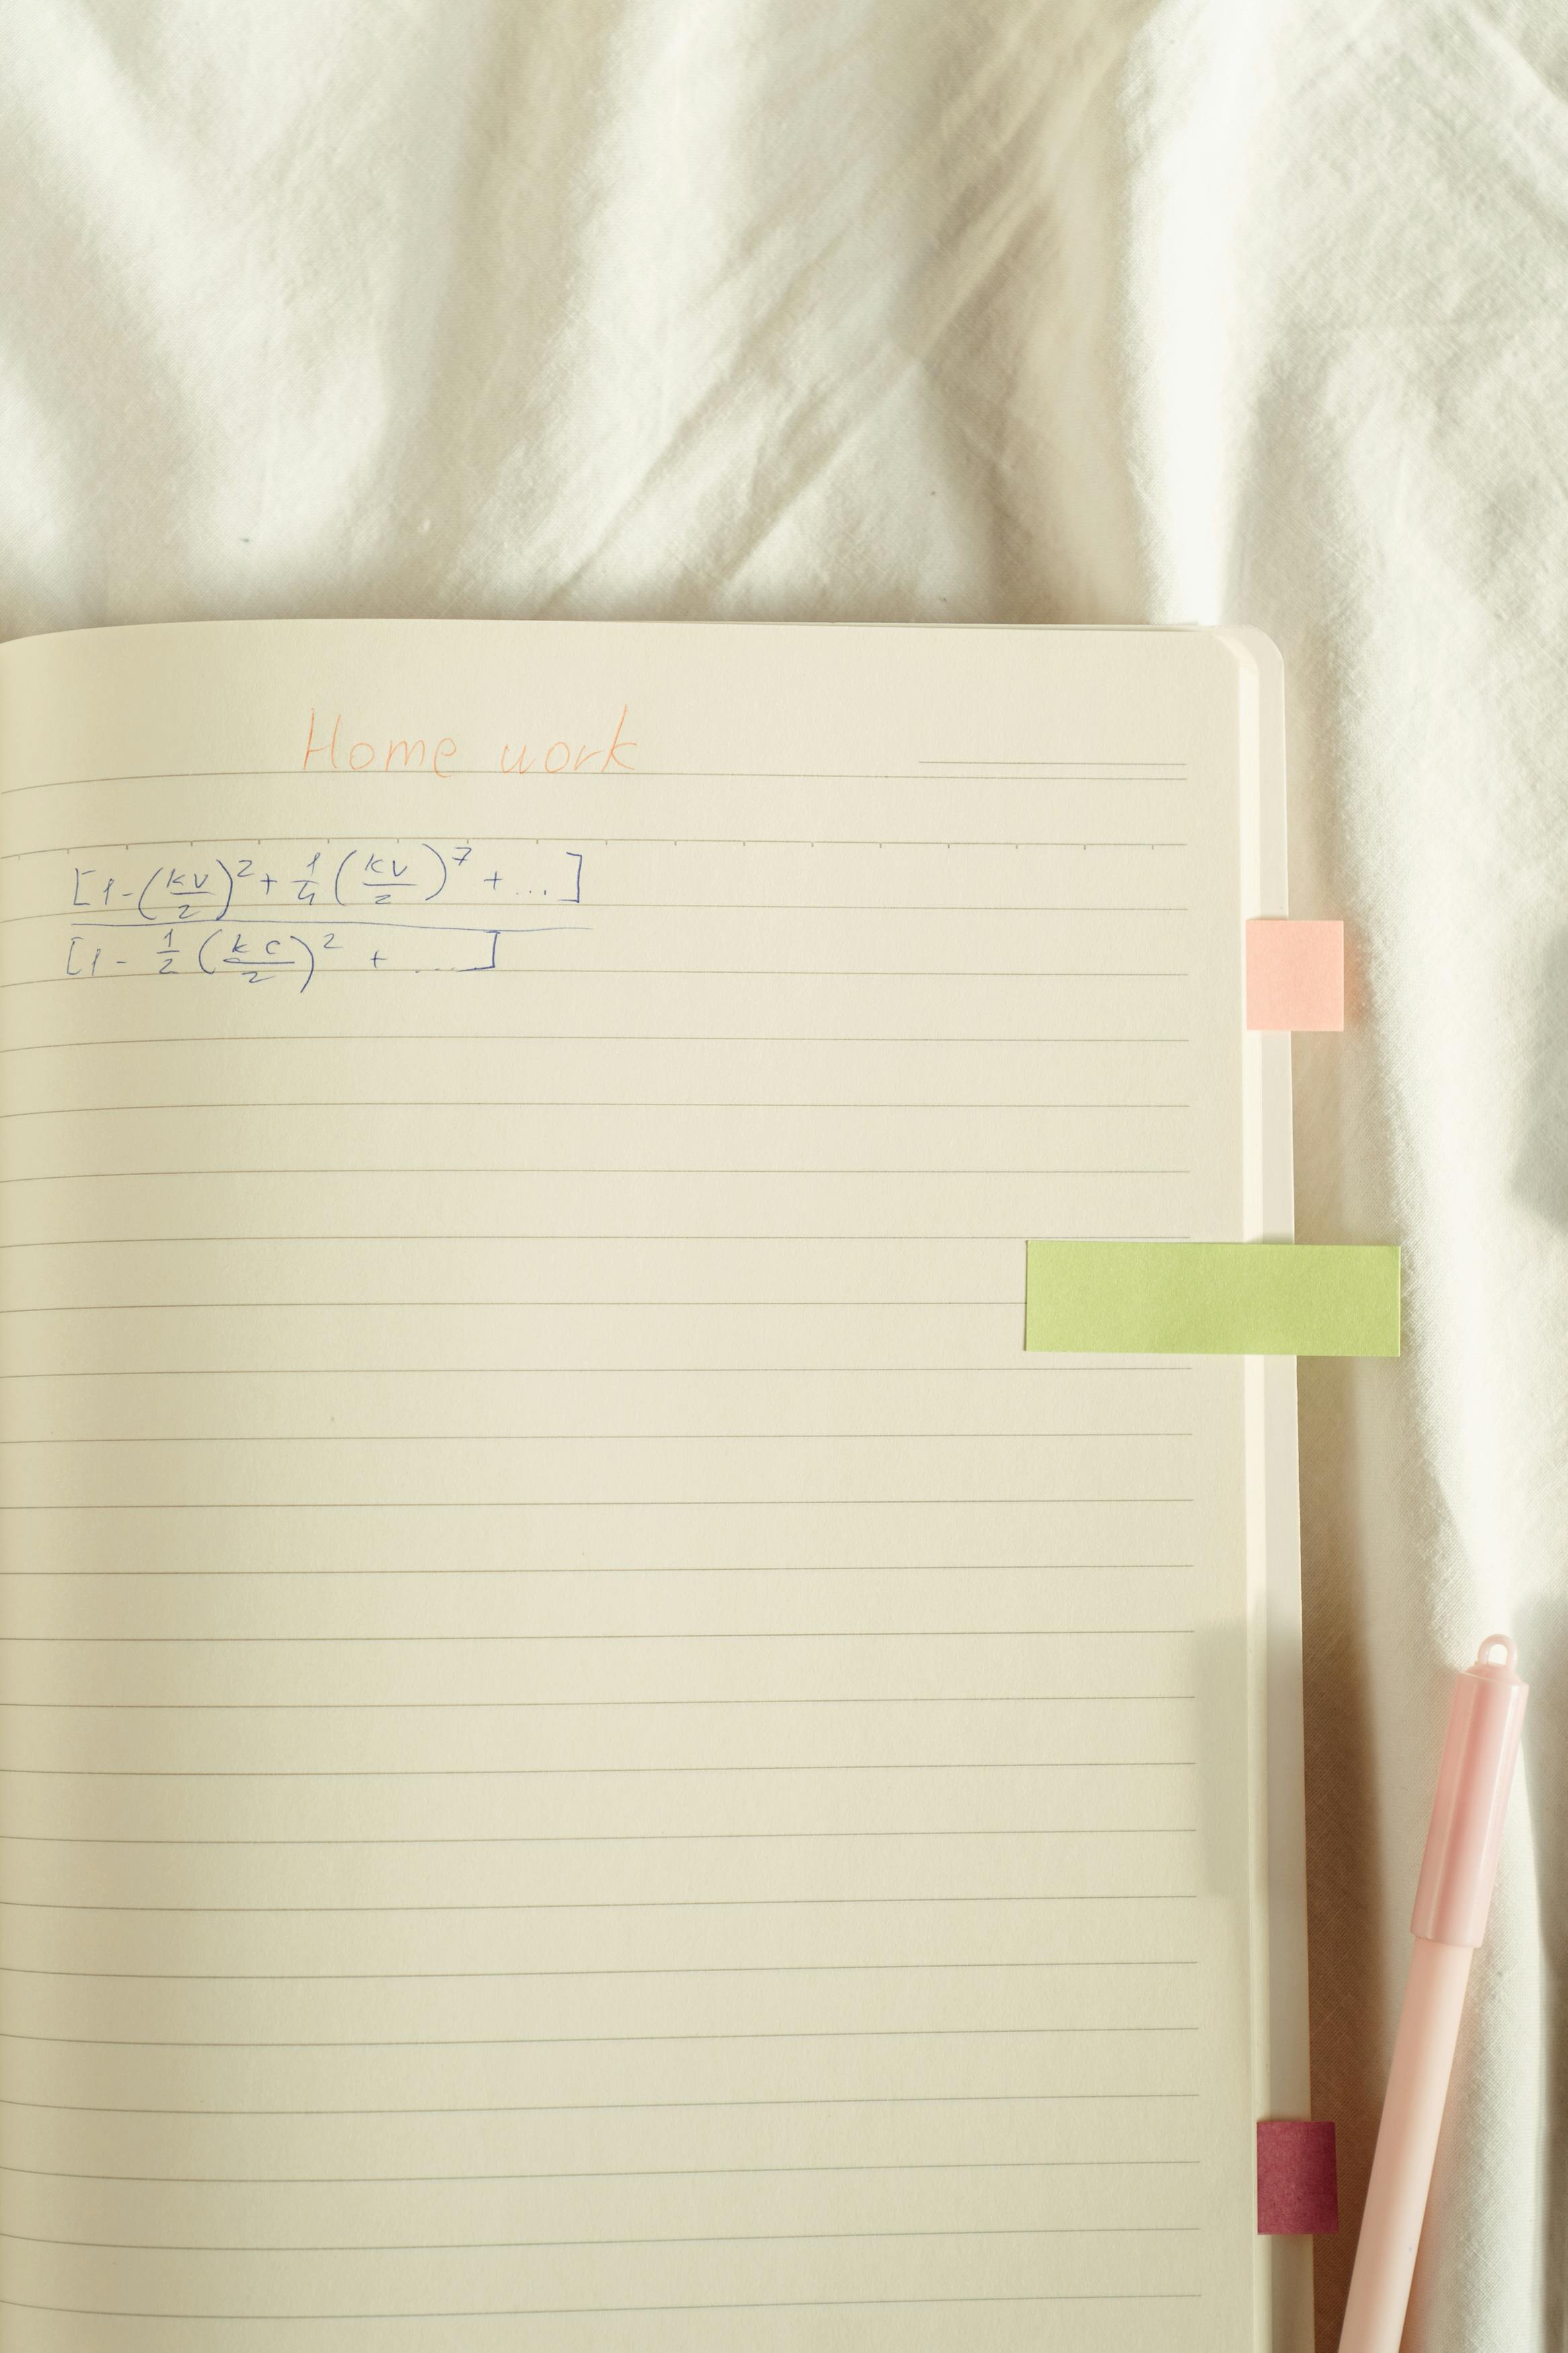 Home work
[1-(kv/2)^2 + 1/4 (kv/2)^7 + ...]
[1 - 1/2 (kc/2)^2 + ...]